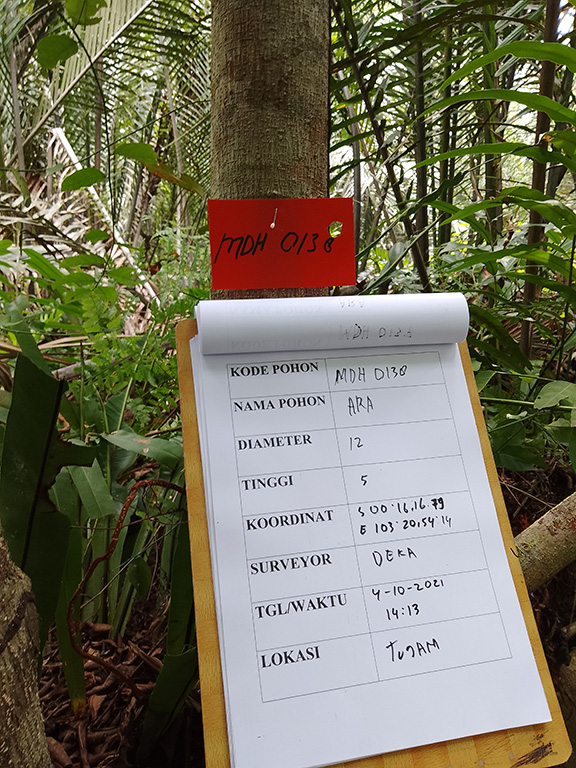 MDH 0138
KODE POHON MDH 0138
NAMA POHON ARA
DIAMETER 12
TINGGI 5
KOORDINAT S 00°16.16.79
E 103°20.54.14
SURVEYOR DEKA
TGL/WAKTU 4-10-2021
14:13
LOKASI